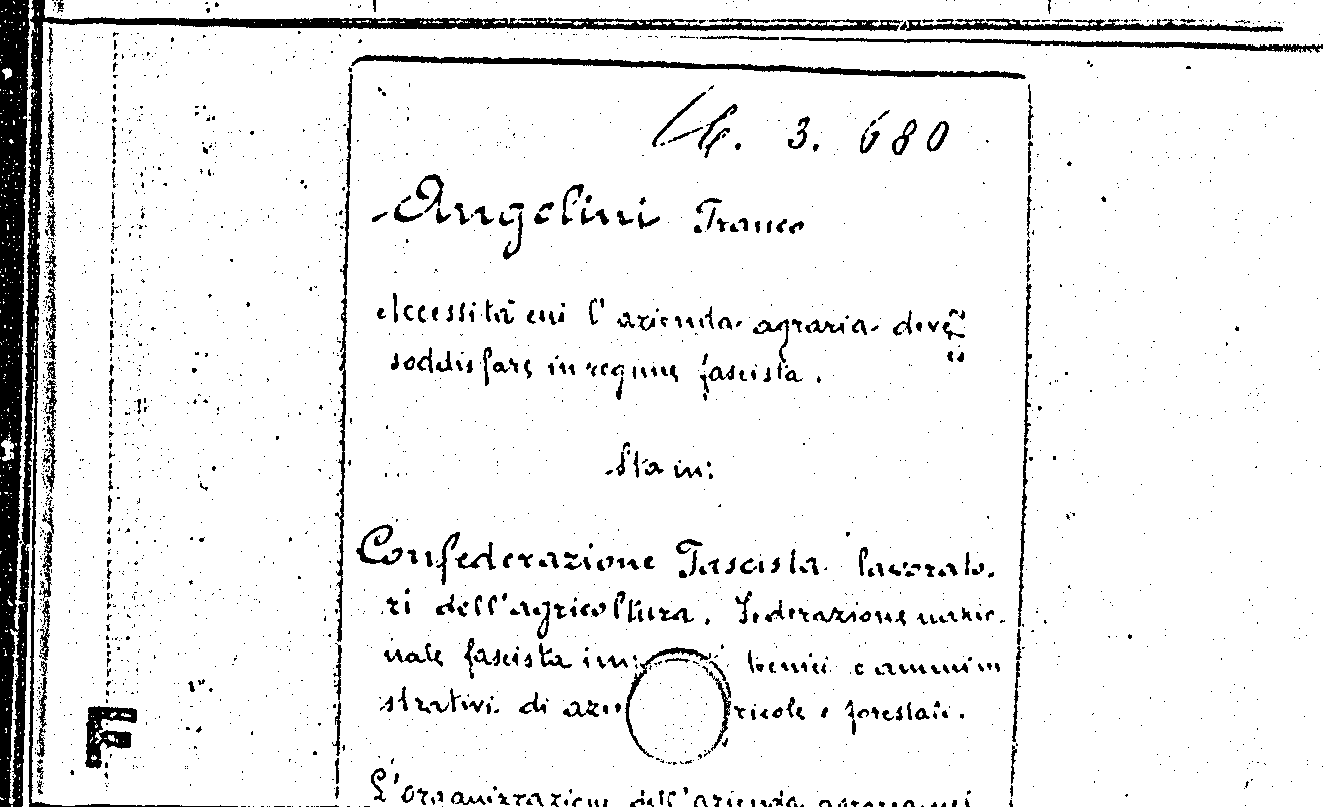 M. 3. 680
Angelini Franco
Necessità cui l'azienda agraria deve
soddisfare in regime fascista.
Sta in:
Confederazione Fascista lavorato-
ri dell'agricoltura. Federazione nazio-
nale fascista tecnici e ammini
strativi di azie ricole e forestali.
L'organizzazione dell'azienda agraria nei
F